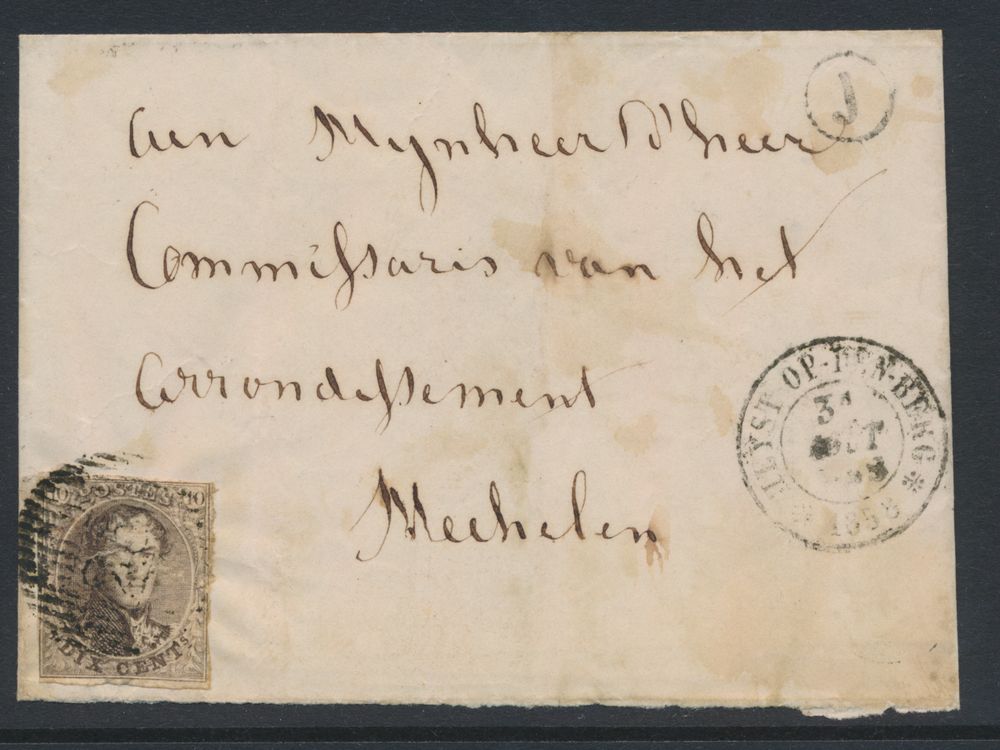 J
aen Mynheer d'heer
Commissaris van het
Arrondissement
Mechelen
HEYST-OP-DEN-BERG
31
1858
POSTES
10 10
DIX CENTS